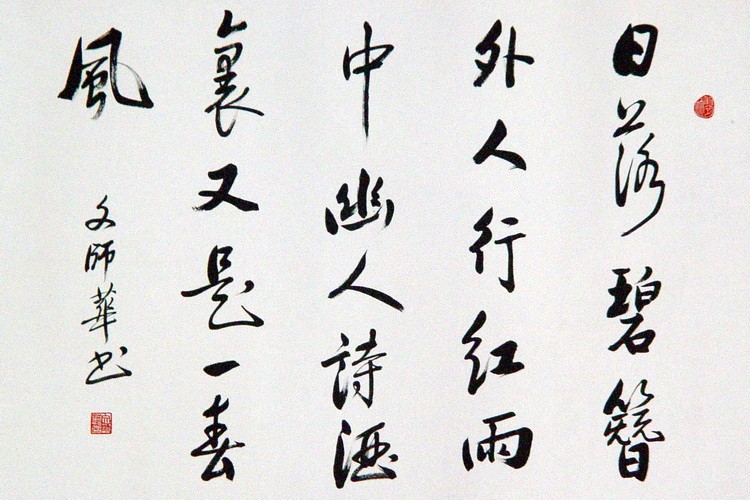 日落碧簪
外人行紅雨
中幽人詩酒
裏又是一春
風
文師華书